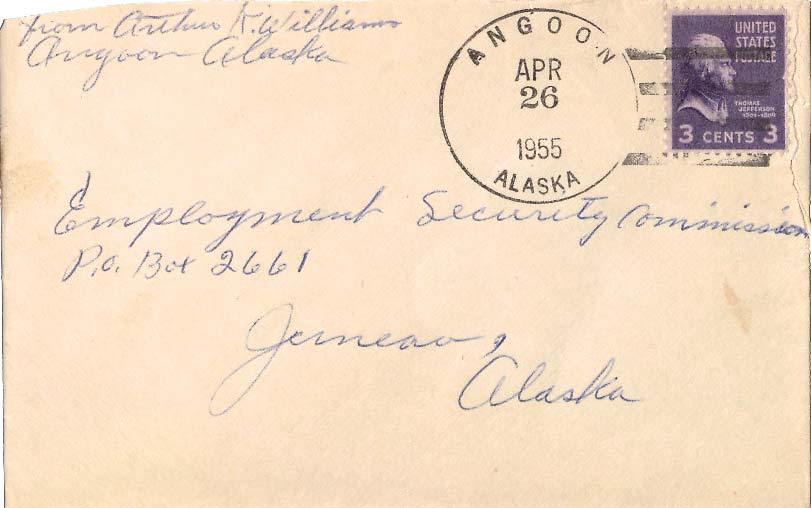 from Arthur K. Williams
Angoon Alaska
ANGOON
APR
26
1955
ALASKA
UNITED
STATES
POSTAGE
THOMAS
JEFFERSON
1801-1809
3 CENTS 3
Employment Security Commission
P.O. Box 2661
Juneau,
Alaska